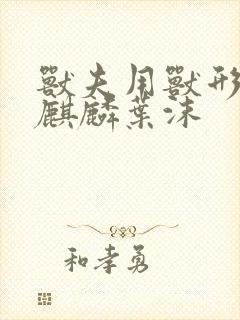 獸夫用獸形
麒麟葉沫
和孝勇